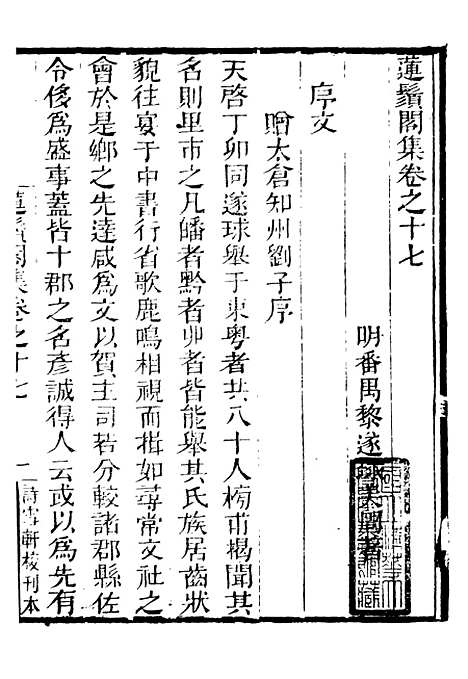 蓮鬚閣集卷之十七
明番禺黎遂球美周著
序文
贈太倉知州劉子序
天啓丁卯同遂球舉于東粵者共八十人榜甫揭聞其
名則里市之凡皤者黔者丱者皆能舉其氏族居齒狀
貌往宴于中書行省歌鹿鳴相視而揖如尋常文社之
會於是鄉之先達咸爲文以賀主司若分較諸郡縣佐
令俊爲盛事蓋皆十郡之名彥誠得人云或以爲先有
蓮鬚閣集卷之十七
一
詩雪軒校刊本